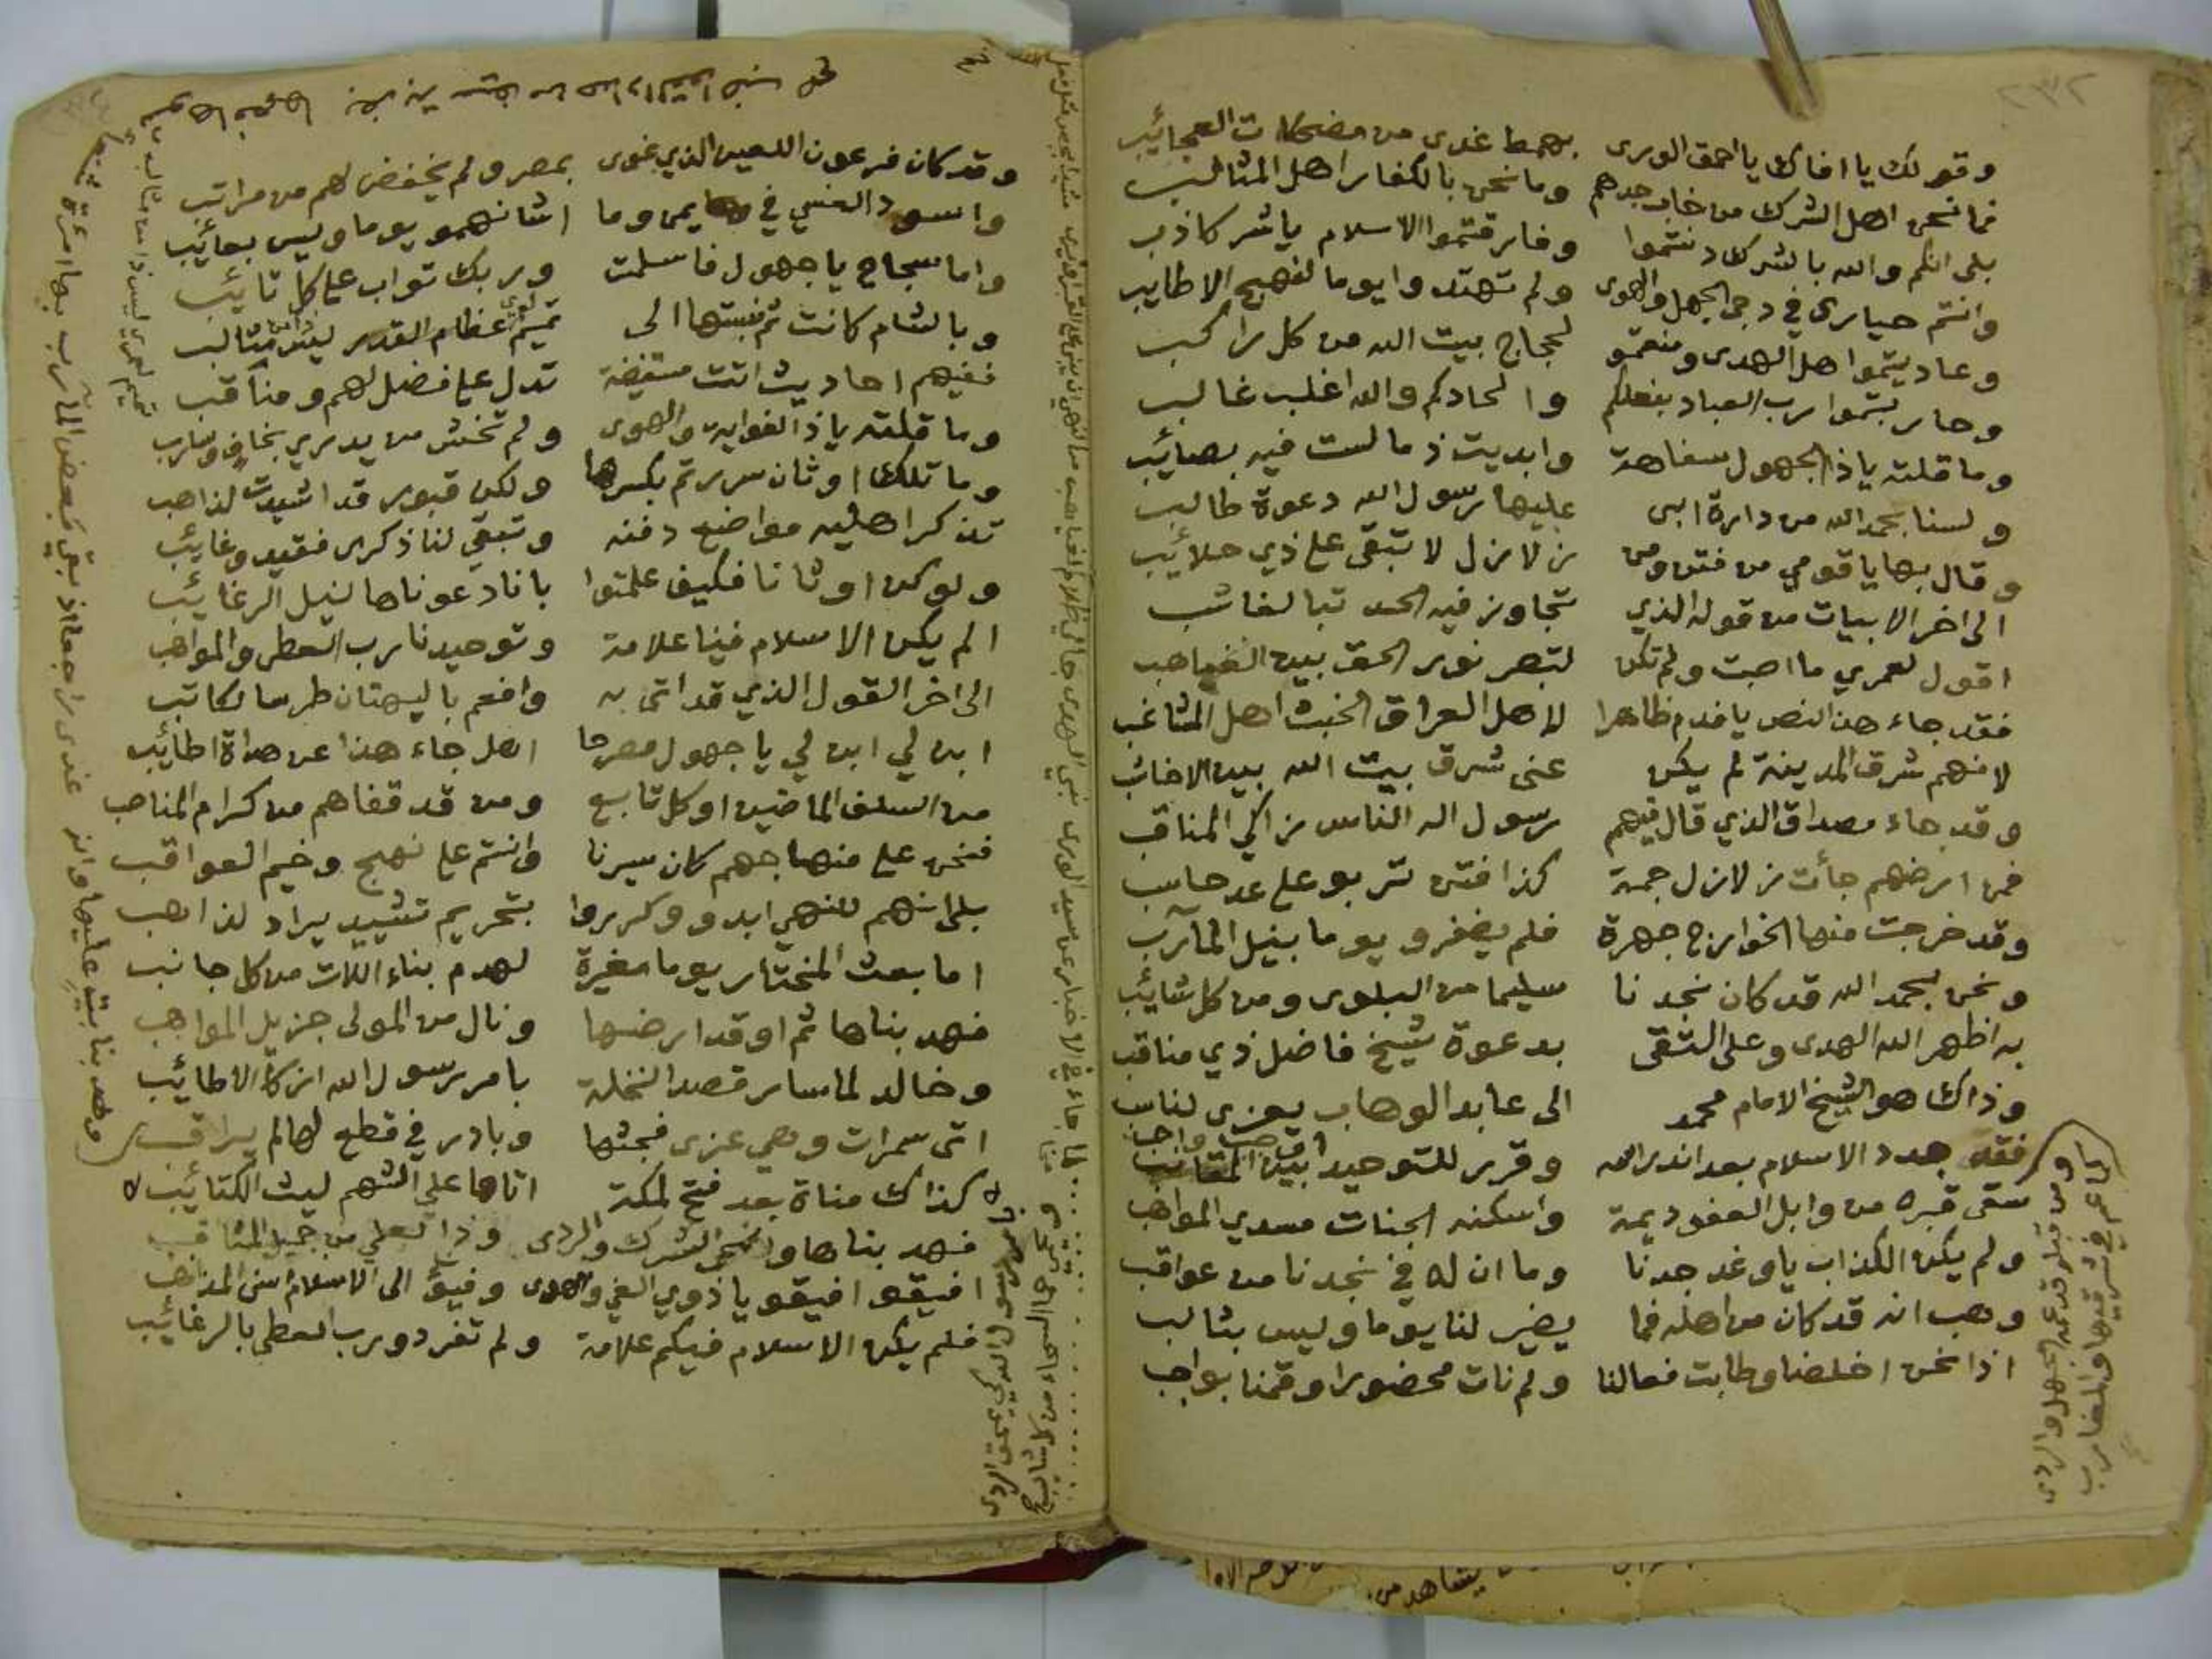 وقولك يا افاك يا احمق الورى بهمط غدى من مضحكات العجائب
فما نحن اهل الشرك من خاب جدهم وما نحن بالكفار اهل المثالب
بلى انكم والله بالشرك دنتموا وفارقتموا الاسلام ياشر كاذب
وانتم حيارى في دجى الجهل والهوى ولم تهتدوا يوما لنهج الاطايب
وعاديتموا هل الهدى ومنعتمو لحجاج بيت الله من كل راكب
وحاربتموا رب العباد بفعلكم والحادكم والله اغلب غالب
وما قلته ياذا الجهول سفاهة وابديت ذما لست فيه بصائب
ولسنا بحمد الله من دارة ابى عليها رسول الله دعوة طالب
وقال بها يا قومي من فتن ومن زلازل لا تبقى على ذي حلائب
الى اخر الابيات من قوله الذي تجاوز فيه الحد تبا لغائب
اقول لعمري ما اصبت ولم تكن لتبصر نور الحق بين الغياهب
فقد جاء هذا النص يا فدم ظاهرا لاهل العراق الخبث اهل المشاغب
لانهم شرق المدينة لم يكن عنى شرق بيت الله بين الاخاشب
وقد جاء مصداق الذي قال فيهم رسول اله الناس زاكي المناقب
فمن ارضهم جأت زلازل جمة كذا فتن تربو على عد حاسب
وقد خرجت منها الخوارج جهرة فلم يضفرو يوما بنيل المآرب
ونحن بحمد الله قد كان نجدنا سليما من البلوى ومن كل شائب
به اظهر الله الهدى وعلى التقى بدعوة شيخ فاضل ذي مناقب
وذاك هو الشيخ الامام محمد الى عابد الوهاب يعزى لناسب
فقد جدد الاسلام بعد اندراسه وقرر للتوحيد ابين واجب
سقى قبره من وابل العفو ديمة واسكنه الجنات مسدي المواهب
ولم يكن الكذاب يا وغد جدنا وما ان له في نجدنا من عواقب
وهب انه قد كان من اهله فما يضير لنا يوما وليس بثالب
اذا نحن اخلصنا وطابت فعالنا ولم نات محضورا وقمنا بواجب
ومن قبل قد عمه الجهل والردى
لاعم في شرقيها والمغارب
وقد كان فرعون اللعين الذي غوى بمصر ولم يخفض لهم من مراتب
واسود العنسي في يمن وما اشانهمو يوما وليس بعائب
واما سجاح يا جهول فاسلمت وربك تواب على كل تائب
وبالشام كانت ثم نسبتها الى تميم عظام القدر
ففيهم احاديث اتت مستفيضة تدل على فضل لهم ومناقب
وما قلته ياذا الغواية والهوى ولم تخش من يدري بخاف وسارب
وما تلك اوثان سررتم بكسرها ولكن قبور قد اشيدت لذاهب
تذكر اهليه مواضع دفنه وتبقي لنا ذكرى فقيد وغايب
ولو كن اوثانا فكيف علمتوا بانا دعوناها لنيل الرغايب
الم يكن الاسلام فينا علامة وتوحيدنا رب العطى والمواهب
الى اخر القول الذي قد اتى به وافعم بالبهتان طرسا لكاتب
ابن لي ابن لي يا جهول مصرحا اهل جاء هذا عن هداة اطائب
من السلف الماضين او كل تابع ومن قد قفاهم من كرام المناصب
فنحن على منهاجهم كان سيرنا وانتم على نهج وخيم العواقب
بلى انهم للنهي ابدو وكرروا بتحريم تشييد يراد لذاهب
اما بعث المختار يوما مغيرة لهدم بناء اللات من كل جانب
فهد بناها ثم اوقد ارضها ونال من المولى جزيل المواهب
وخالد لما سار قصدا لنخلة بامر رسول الله ازكى الاطائب
اتى سمرات وهي عزى فجثها وبادر في قطع لها لم يراقب
كذاك مناة بعد فتح لمكة اتاها علي الشهم ليث الكتائب
فهد بناها والشرك والردى وذا لعلي من جميل المناقب
افيقو افيقو يا ذوي الغي والهوى وفيؤ الى الاسلام اسنى المذاهب
فلم يكن الاسلام فيكم علامة ولم تفردو رب العطى بالرغائب